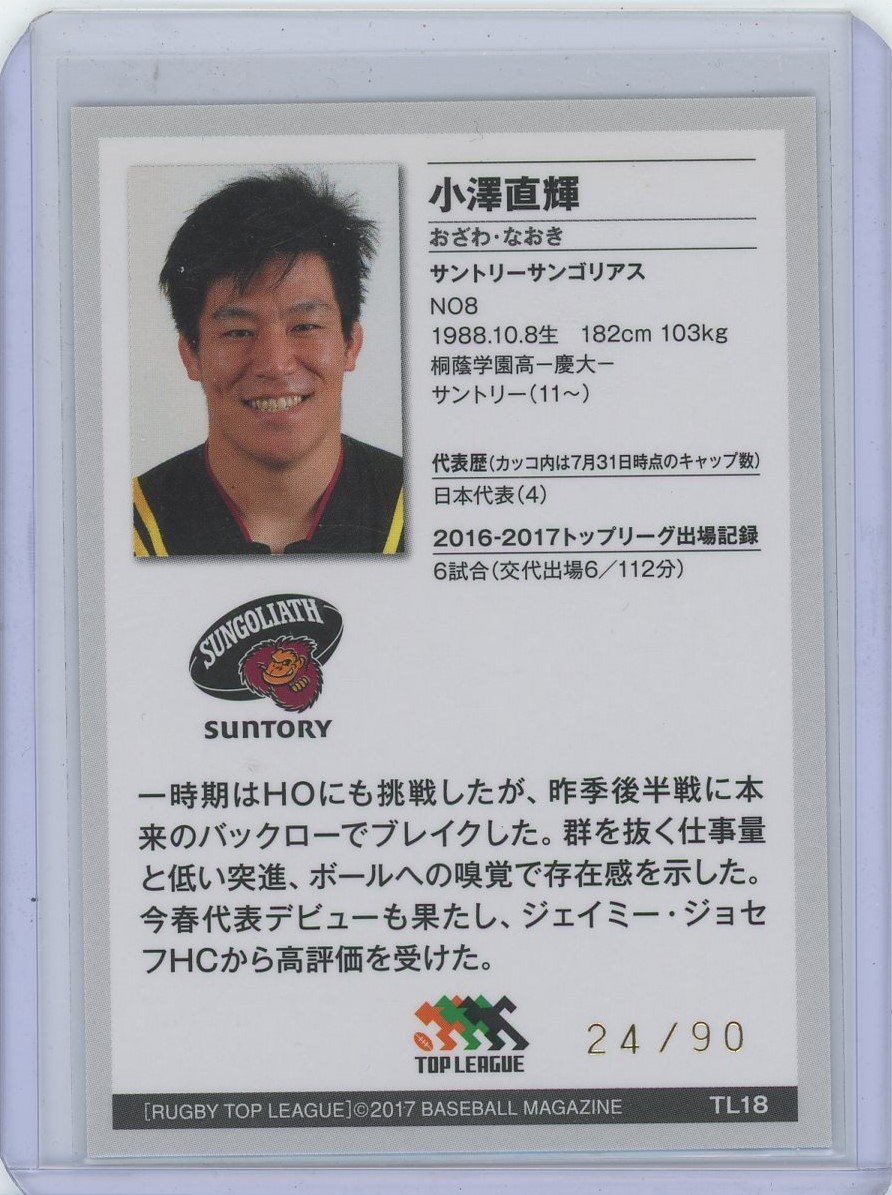 小澤直輝
おざわ・なおき
サントリーサンゴリアス
NO8
1988.10.8生　182cm 103kg
桐蔭学園高ー慶大ー
サントリー（11〜）
代表歴（カッコ内は7月31日時点のキャップ数）
日本代表（4）
2016-2017トップリーグ出場記録
6試合（交代出場6／112分）
SUNGOLIATH
SUNTORY
一時期はHOにも挑戦したが、昨季後半戦に本
来のバックローでブレイクした。群を抜く仕事量
と低い突進、ボールへの嗅覚で存在感を示した。
今春代表デビューも果たし、ジェイミー・ジョセ
フHCから高評価を受けた。
TOP LEAGUE
24/90
［RUGBY TOP LEAGUE］©2017 BASEBALL MAGAZINE
TL18